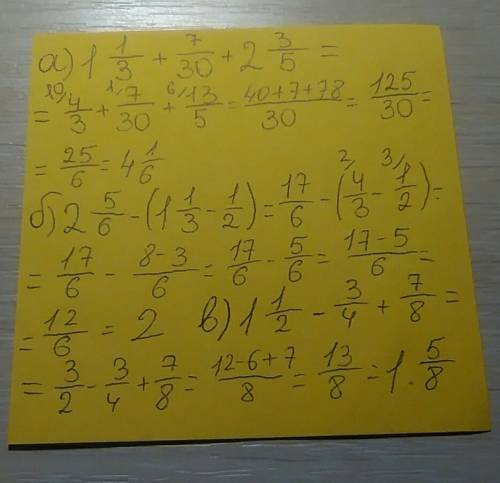 а) 1 1/3 + 7/30 + 2 3/5 =
= 10/ 4/3 + 1/ 7/30 + 6/ 13/5 = 40+7+78/30 = 125/30 =
= 25/6 = 4 1/6
б) 2 5/6 - (1 1/3 - 1/2) = 17/6 - (2/ 4/3 - 3/ 1/2) =
= 17/6 - 8-3/6 = 17/6 - 5/6 = 17-5/6 =
= 12/6 = 2 в) 1 1/2 - 3/4 + 7/8 =
= 3/2 - 3/4 + 7/8 = 12-6+7/8 = 13/8 = 1. 5/8